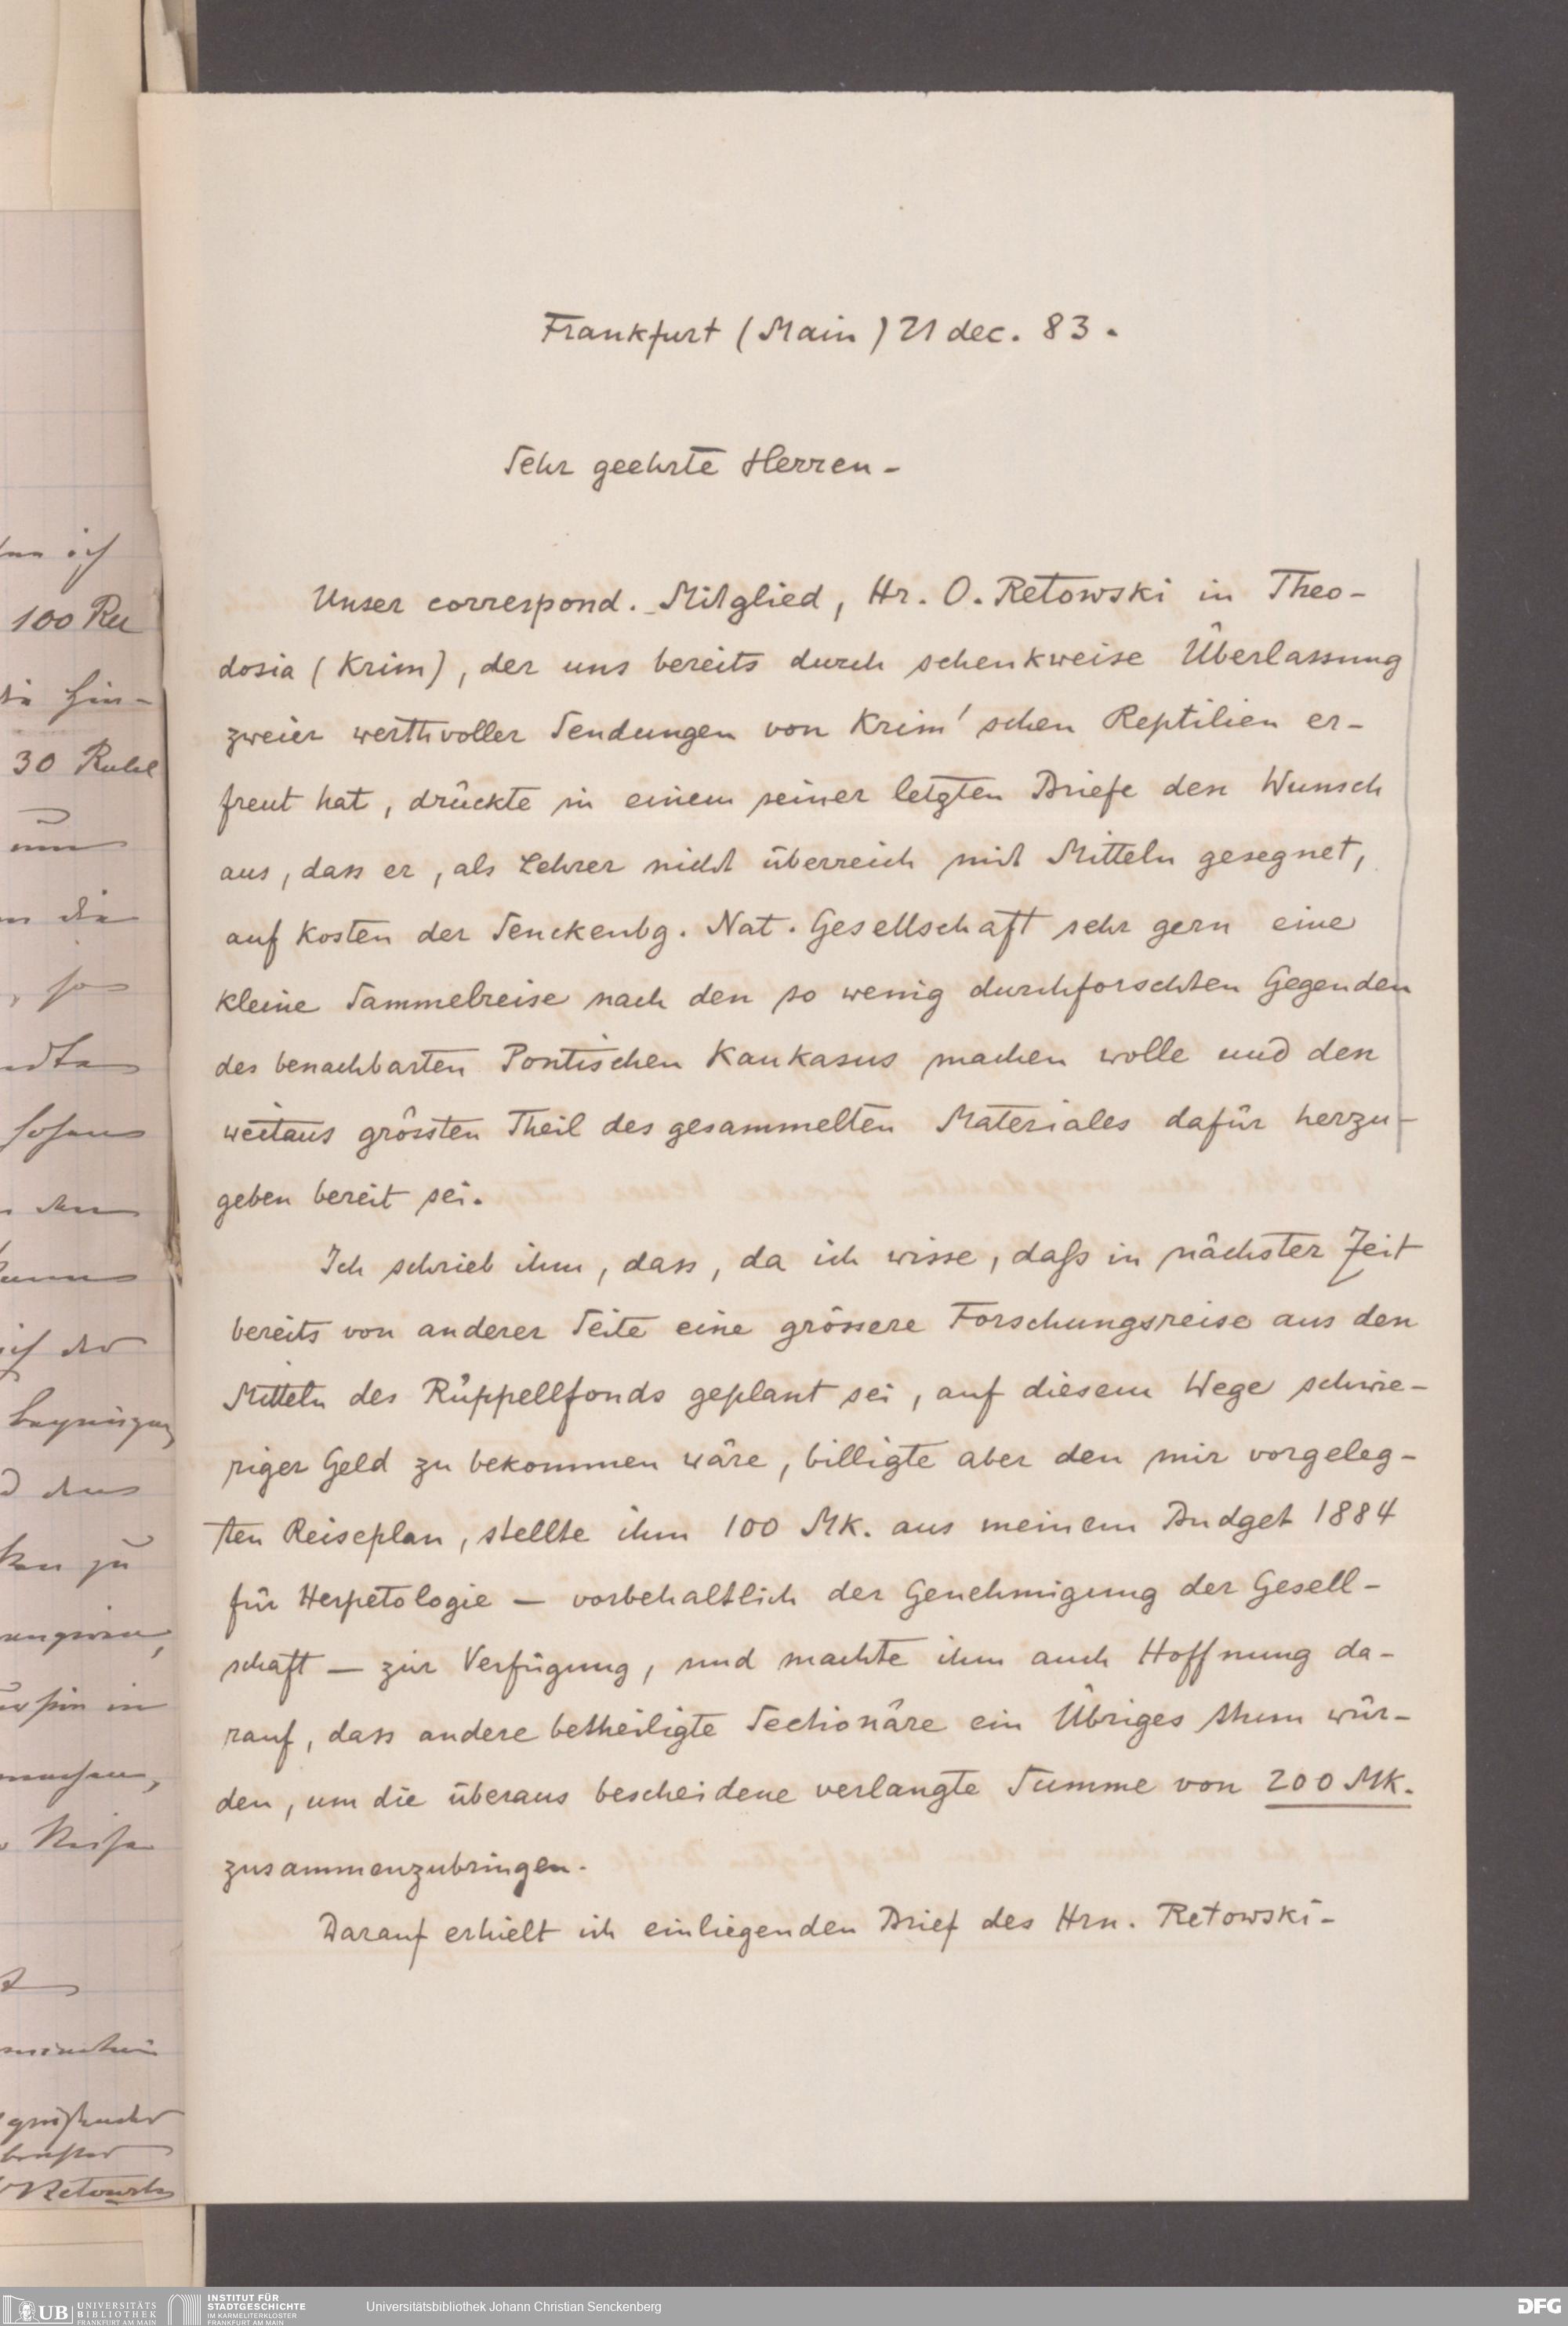 Frankfurt (Main) 21 dec. 83.
Sehr geehrte Herren-
Unser correspond. Mitglied, Hr. O. Retowski in Theo-
dosia (Krim), der uns bereits durch schenkweise Überlassung
zweier werthvoller Sendungen von Krim'schen Reptilien er-
freut hat, drückte in einem seiner letzten Briefe den Wunsch
aus, dass er, als Lehrer nicht überreich mit Mitteln gesegnet,
auf Kosten der Senckenbg. Nat. Gesellschaft sehr gern eine
kleine Sammelreise nach den so wenig durchforschten Gegenden
des benachbarten Pontischen Kaukasus machen wolle und den
weitaus grössten Theil des gesammelten Materiales dafür herzu-
geben bereit sei.
Ich schrieb ihm, dass, da ich wisse, daß in nächster Zeit
bereits von anderer Seite eine grössere Forschungsreise aus den
Mitteln des Rüppellfonds geplant sei, auf diesem Wege schwie-
riger Geld zu bekommen wäre, billigte aber den mir vorgeleg-
ten Reiseplan, stellte ihm 100 Mk. aus meinem Budget 1884
für Herpetologie — vorbehaltlich der Genehmigung der Gesell-
schaft — zur Verfügung, und machte ihm auch Hoffnung da-
rauf, dass andere betheiligte Sectionäre ein Übriges thun wür-
den, um die überaus bescheidene verlangte Summe von 200 Mk.
zusammenzubringen.
Darauf erhielt ich einliegenden Brief des Hrn. Retowski-
ich
100 Ru
30 Rubel
die
zu
in
Retowski
UB UNIVERSITÄTS
BIBLIOTHEK
FRANKFURT AM MAIN
INSTITUT FÜR
STADTGESCHICHTE
IM KARMELITERKLOSTER
FRANKFURT AM MAIN
Universitätsbibliothek Johann Christian Senckenberg
DFG